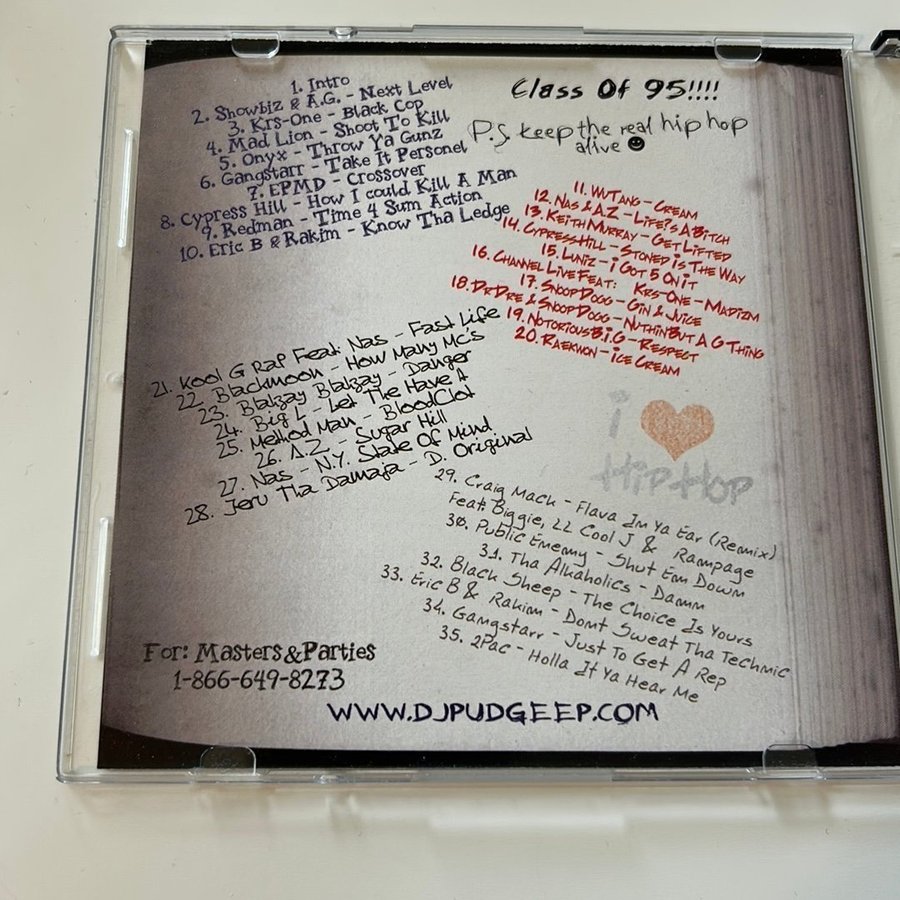 1. Intro
2. Showbiz & A.G. - Next Level
3. Krs-One - Black Cop
4. Mad Lion - Shoot To Kill
5. Onyx - Throw Ya Gunz
6. Gangstarr - Take It Personel
7. EPMD - Crossover
8. Cypress Hill - How I could Kill A Man
9. Redman - Time 4 Sum Action
10. Eric B & Rakim - Know Tha Ledge
Class Of 95!!!!
P.S keep the real hip hop
alive
11. Wu Tang - Cream
12. Nas & A.Z - Life?s A Bitch
13. Keith Murray - Get Lifted
14. Cypress Hill - Stoned Is The Way
15. Luniz - i Got 5 On it
16. Channel Live Feat: Krs-One - Madizm
17. Snoop Dogg - Gin & Juice
18. Dr Dre & Snoop Dogg - Nuthin But A G Thing
19. Notorious B.i.G - Respect
20. Raekwon - ice Cream
21. Kool G Rap Feat: Nas - Fast Life
22. Blackmoon - How Many Mc's
23. Blahzay Blahzay - Danger
24. Big L - Let The Have it
25. Method Man - BloodClot
26. A.Z. - Sugar Hill
27. Nas - N.Y. State Of Mind
28. Jeru Tha Damaja - D. Original
i
Hip Hop
29. Craig Mack - Flava Im Ya Ear (Remix)
Feat: Biggie, LL Cool J & Rampage
30. Public Enemy - Shut Em Down
31. Tha Alkaholics - Damm
32. Black Sheep - The Choice Is Yours
33. Eric B & Rakim - Dont Sweat Tha Technic
34. Gangstarr - Just To Get A Rep
35. 2Pac - Holla If Ya Hear Me
For: Masters&Parties
1-866-649-8273
WWW.DJPUDGEEP.COM